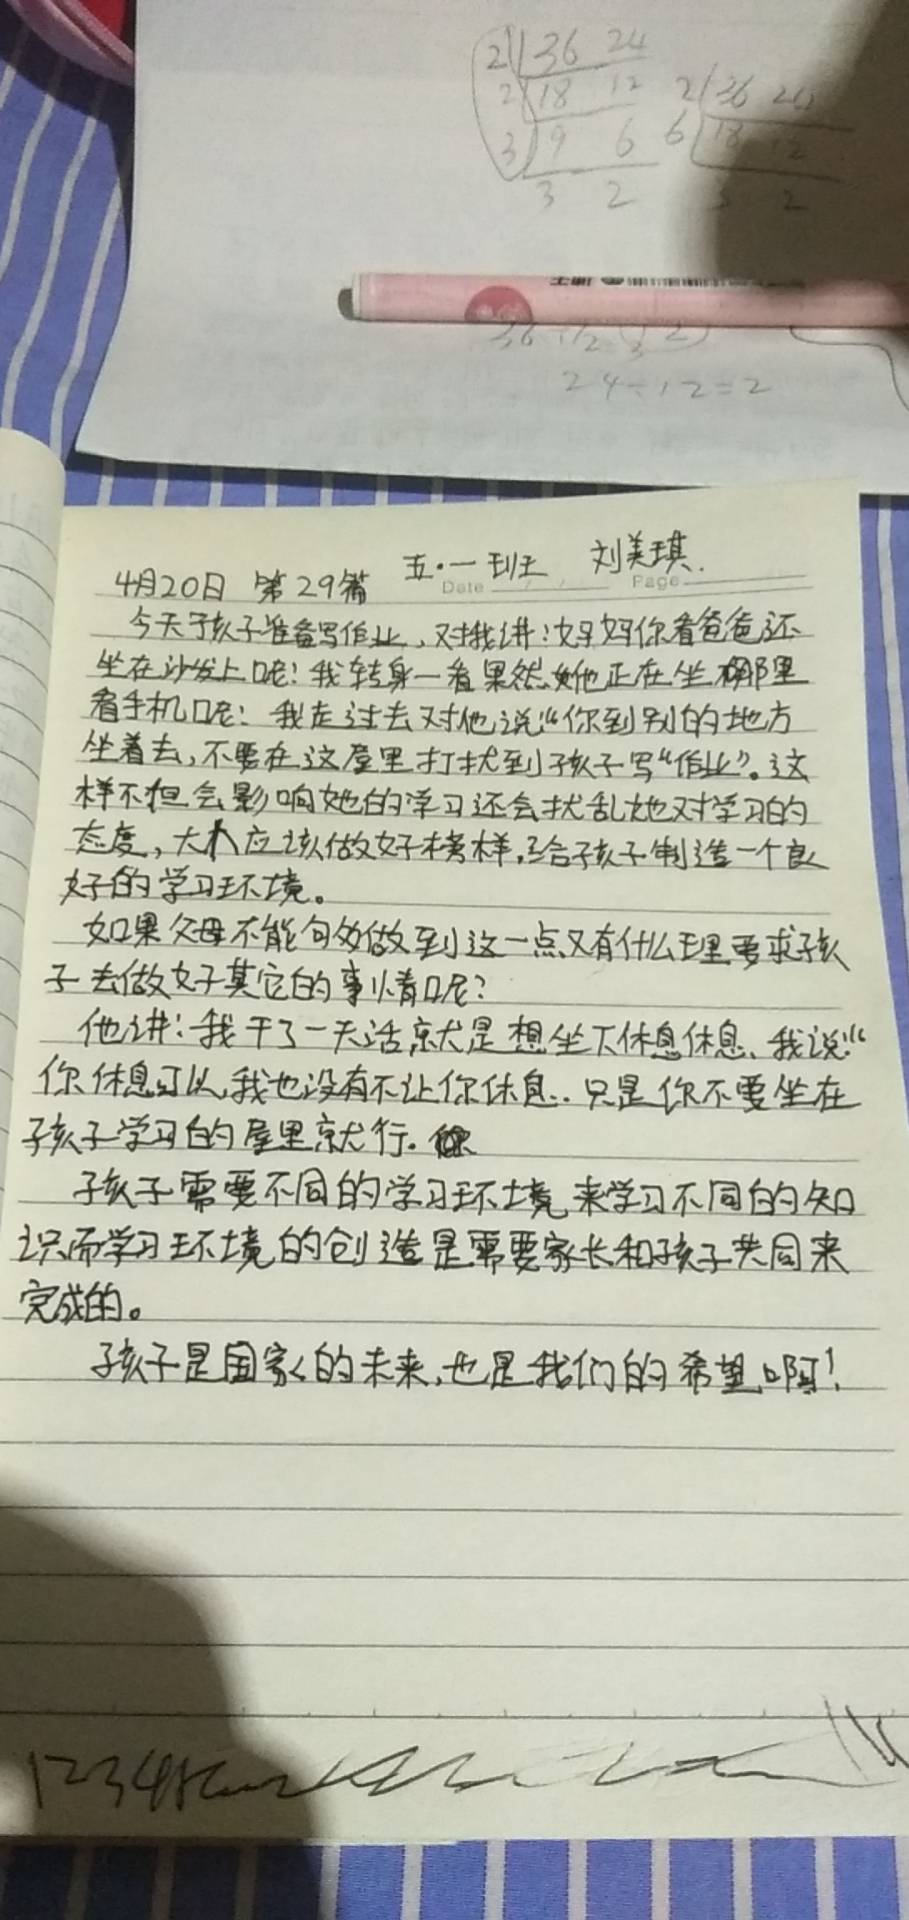 2 36 24
2 18 12
3 9 6
3 2
2 36 24
6 18 12
3 2
24÷12=2
五·一班 刘美琪.
4月20日 第29篇
Date Page
今天孩子准备写作业,对我讲:妈妈你看爸爸还
坐在沙发上呢!我转身一看果然他正在坐哪里
看手机呢!我走过去对他说“你到别的地方
坐着去,不要在这屋里打扰到孩子写“作业”。这
样不但会影响她的学习还会扰乱她对学习的
态度,大人应该做好榜样,给孩子制造一个良
好的学习环境。
如果父母不能句够做到这一点又有什么理要求孩
子去做好其它的事情呢?
他讲:我干了一天活就是想坐下休息休息、我说:“
你休息可以,我也没有不让你休息.只是你不要坐在
孩子学习的屋里就行.
孩子需要不同的学习环境来学习不同的知
识而学习环境的创造是需要家长和孩子共同来
完成的。
孩子是国家的未来,也是我们的希望啊!
1234